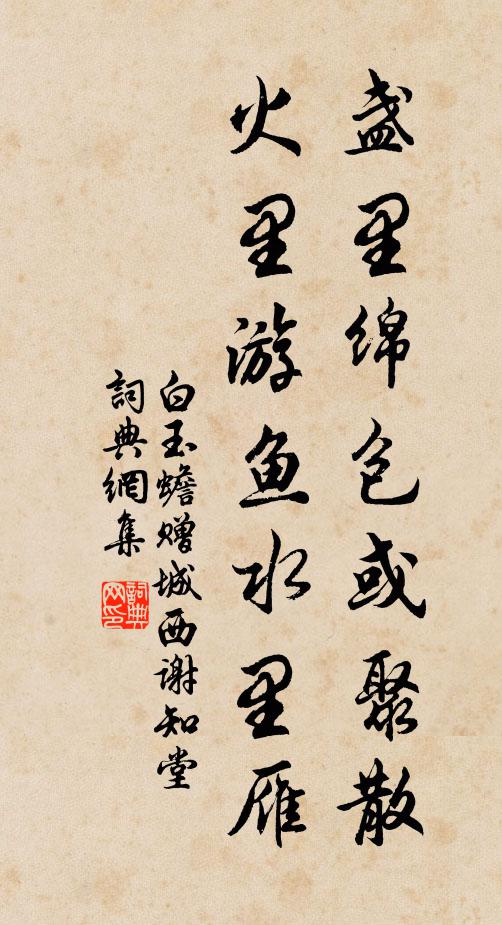 盏里绵包或聚散
火里游鱼水里雁
白玉蟾赠城西谢知堂
詞典網集
詞典网印